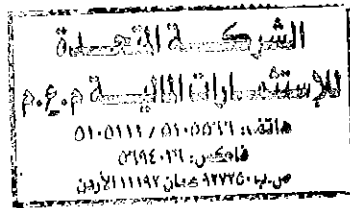 الشركة المتحدة
للإستثمارات المالية م.ع.م
هاتف: ٥١٠٥١١١ / ٥١٠٥٥٦٦
فاكس: ٥٦٩٤٠٢٦
ص.ب ٩٢٧٢٥٠ عمان ١١١٩٢ الأردن